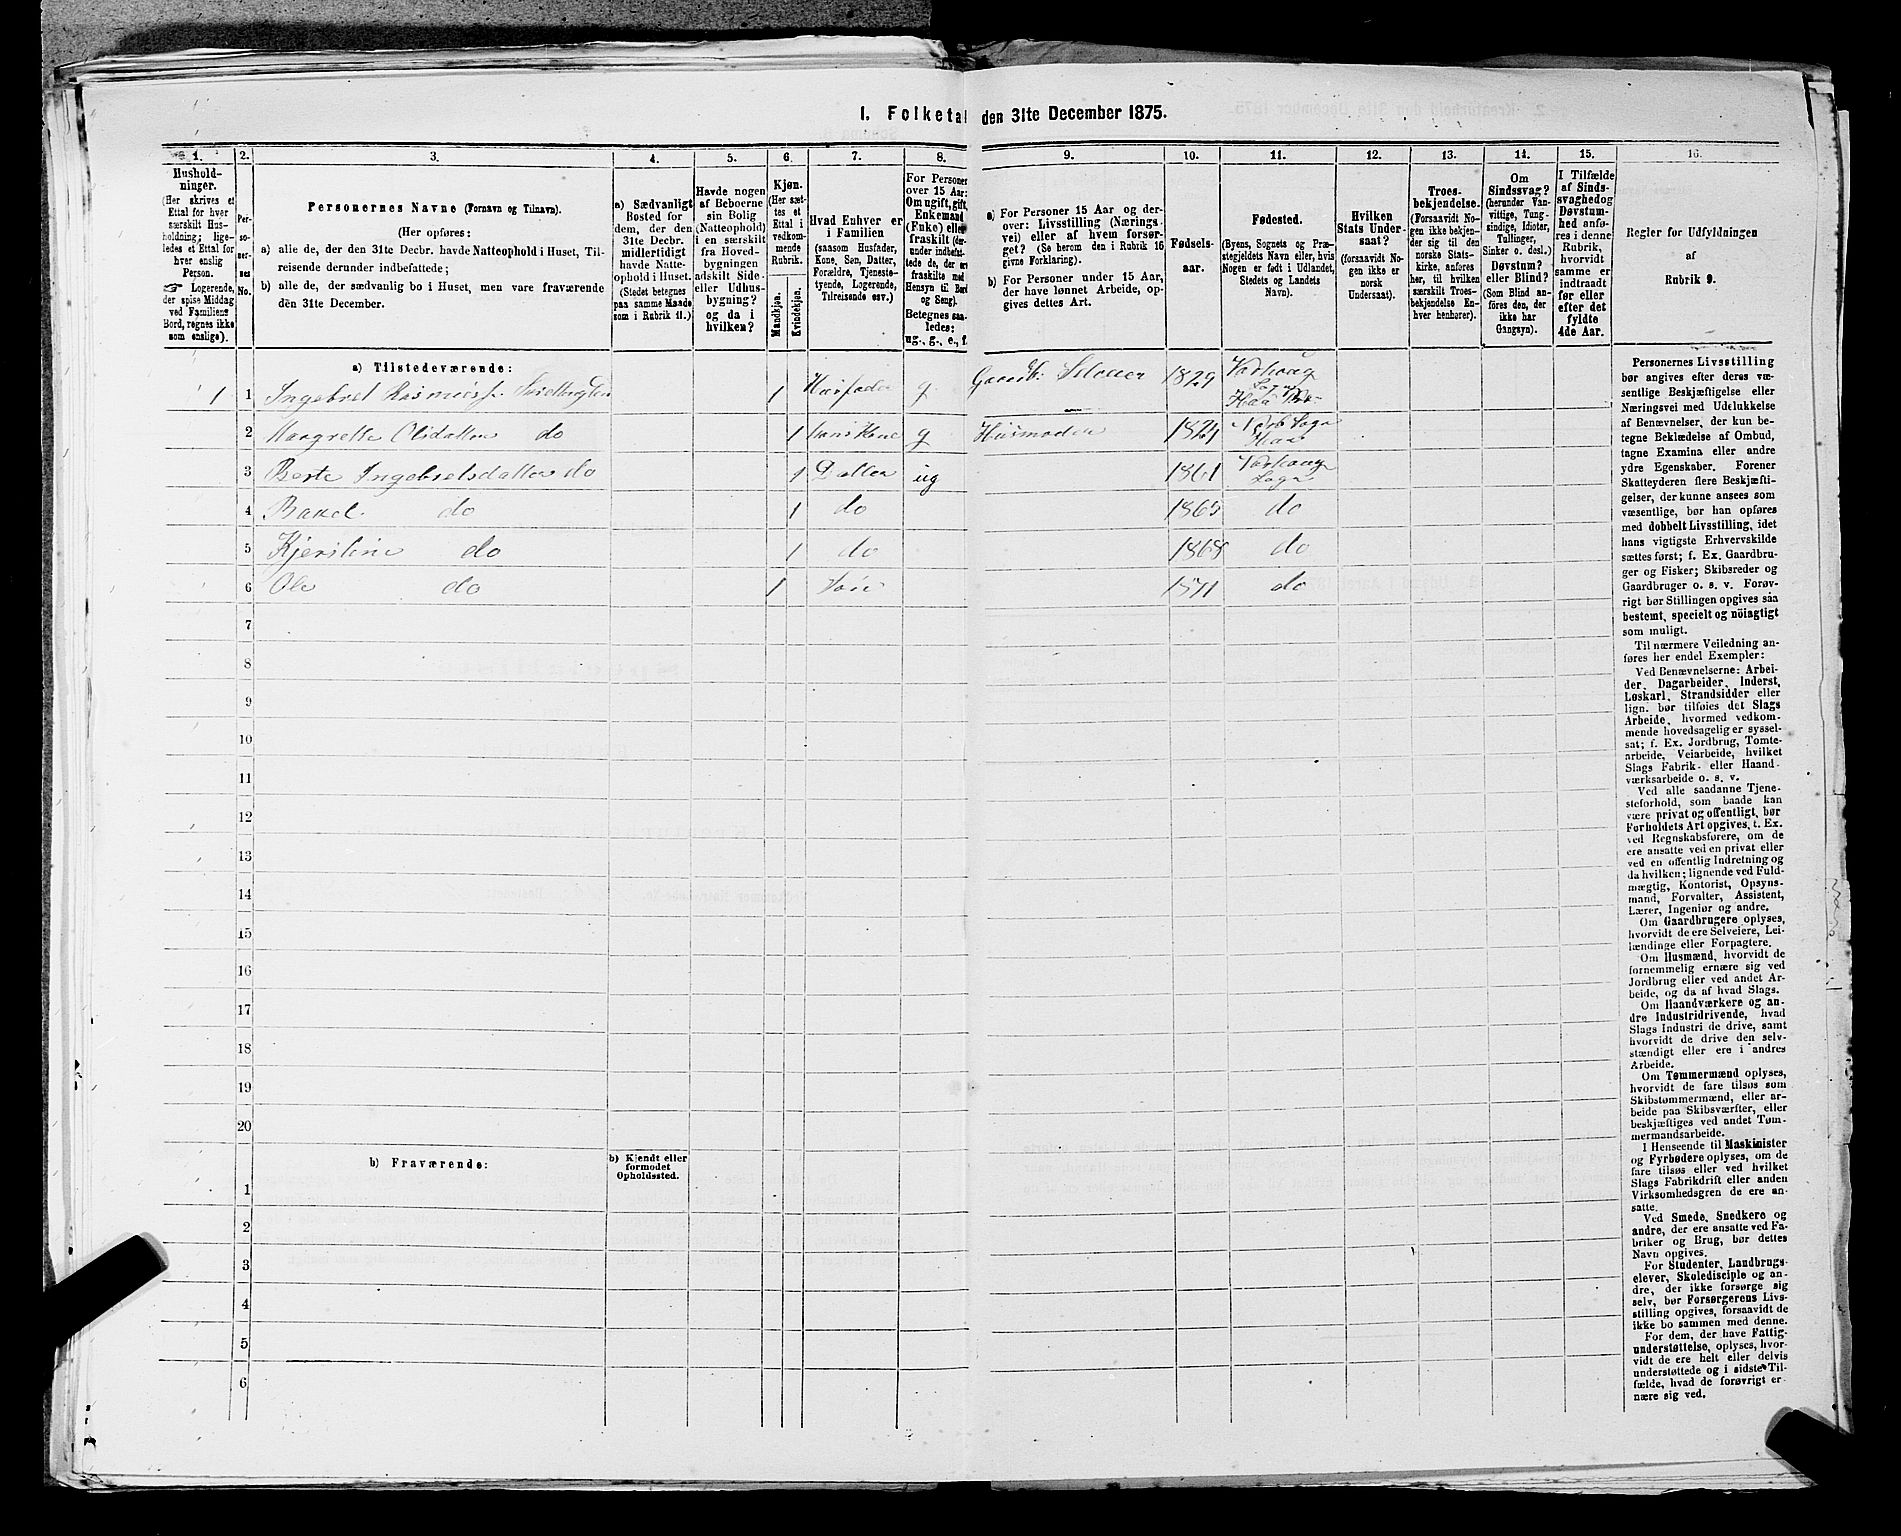 1. Folketal den 31te December 1875.
1. 2. 3. 4. 5. 6. 7. 8. 9. 10. 11. 12. 13. 14. 15. 16.
Hushold-
ninger.
(Her skrives et
Ettal for hver
særskilt Hus-
holdning; lige-
ledes et Ettal for
hver enslig
Person.
☞ Logerende,
der spise Middag
ved Familiens
Bord, regnes ikke
som enslige).
Per-
so-
ner-
nes
No.
Personernes Navne (Fornavn og Tilnavn).
(Her opføres:
a) alle de, der den 31te Decbr. havde Natteophold i Huset, Til-
reisende derunder indbefattede;
b) alle de, der sædvanlig bo i Huset, men vare fraværende
den 31te December.
a) Sædvanligt
Bosted for
dem, der den
31te Decbr.
midlertidigt
havde Natte-
ophold i Huset.
(Stedet betegnes
paa samme Maade
som i Rubrik 11.)
Havde nogen
af Beboerne
sin Bolig
(Natteophold)
i en særskilt
fra Hoved-
bygningen
adskilt Side-
eller Udhus-
bygning?
og da i
hvilken?
Kjøn.
(Her sæt-
tes et
Ettal i
vedkom-
mende
Rubrik.
Mandkjøn.
Kvindekjøn.
Hvad Enhver er
i Familien
(saasom Husfader,
Kone, Søn, Datter,
Forældre, Tjeneste-
tyende, Logerende,
Tilreisende osv.)
For Personer
over 15 Aar:
Om ugift, gift,
Enkemand
(Enke) eller
fraskilt (der-
under indbefat-
tede de, der er
fraskilte med
Hensyn til Bord
og Seng).
Betegnes saa-
ledes:
ug., g., e., f.
a) For Personer 15 Aar og der-
over: Livsstilling (Nærings-
vei) eller af hvem forsør-
get? (Se herom den i Rubrik 16
givne Forklaring).
b) For Personer under 15 Aar,
der have lønnet Arbeide, op-
gives dettes Art.
Fødsels-
aar.
Fødested.
(Byens, Sognets og Præ-
stegjeldets Navn eller, hvis
Nogen er født i Udlandet,
Stedets og Landets
Navn).
Hvilken
Stats Under-
saat?
(forsaavidt No-
gen ikke er
norsk
Undersaat).
Troes-
bekjendelse.
(Forsaavidt No-
gen ikke bekjen-
der sig til den
norske Stats-
kirke, anføres
her, til hvilken
særskilt Troes-
bekjendelse En-
hver henhører).
Om
Sindssvag?
(herunder Van-
vittige, Tung-
sindige, Idioter,
Tullinger,
Sinker o. desl.).
Døvstum?
eller Blind?
(Som Blind an-
føres den, der
ikke har
Gangsyn).
I Tilfælde
af Sinds-
svaghed og
Døvstum-
hed anfø-
res i denne
Rubrik,
hvorvidt
samme er
indtraadt
før eller
efter det
fyldte
4de Aar.
Regler for Udfyldningen
af
Rubrik 9.
a) Tilstedeværende:
1 1 Ingebret Rasmuss. 1 Husfader g. Gaardb. Selveier 1829 Varhoug Sogn
2 Maagrette Olsdatter do 1 Hans Kone g Husmoder 1824 Sogn Haa
3 Berte Ingebretsdatter do 1 Datter ug 1861 Varhoug Sogn
4 Rakel do 1 do 1865 do
5 Kjerstine do 1 do 1868 do
6 Ole do 1 Søn 1871 do
7
8
9
10
11
12
13
14
15
16
17
18
19
20
b) Fraværende:
b) Kjendt eller
formodet
Opholdssted.
1
2
3
4
5
6
Personernes Livsstilling
bør angives efter deres væ-
sentlige Beskjæftigelse eller
Næringsvei med Udelukkelse
af Benævnelser, der kun be-
tegne Beklædelse af Ombud,
tagne Examina eller andre
ydre Egenskaber. Forener
Skatteyderen flere Beskjæfti-
gelser, der kunne ansees som
væsentlige, bør han opføres
med dobbelt Livsstilling, idet
hans vigtigste Erhvervskilde
sættes først; f. Ex. Gaardbru-
ger og Fisker; Skibsreder og
Gaardbruger o. s. v. Forøv-
rigt bør Stillingen opgives saa
bestemt, specielt og nöiagtigt
som muligt.
Til nærmere Veiledning an-
føres her endel Exempler:
Ved Benævnelserne: Arbei-
der, Dagarbeider, Inderst,
Løskarl, Strandsidder eller
lign. bør tilføies det Slags
Arbeide, hvormed vedkom-
mende hovedsagelig er syssel-
sat; f. Ex. Jordbrug, Tomte-
arbeide, Veiarbeide, hvilket
Slags Fabrik- eller Haand-
værksarbeide o. s. v.
Ved alle saadanne Tjene-
steforhold, som baade kan
være privat og offentligt, bør
Forholdets Art opgives, t. Ex.
ved Regnskabsførere, om de
ere ansatte ved en privat eller
ved en offentlig Indretning og
da hvilken; lignende ved Fuld-
mægtig, Kontorist, Opsyns-
mand, Forvalter, Assistent,
Lærer, Ingeniør og andre.
Om Gaardbrugere oplyses,
hvorvidt de ere Selveiere, Lei-
lændinge eller Forpagtere.
Om Husmænd, hvorvidt de
fornemmelig ernære sig ved
Jordbrug eller ved andet Ar-
beide, og da af hvad Slags.
Om Haandværkere og an-
dre Industridrivende, hvad
Slags Industri de drive, samt
hvorvidt de drive den selv-
stændigt eller ere i andres
Arbeide.
Om Tømmermænd oplyses,
hvorvidt de fare tilsøs som
Skibstømmermænd, eller ar-
beide paa Skibsværfter, eller
beskjæftiges ved andet Tøm-
mermandsarbeide.
I Henseende til Maskinister
og Fyrbødere oplyses, om de
fare tilsøs eller ved hvilket
Slags Fabrikdrift eller anden
Virksomhedsgren de ere an-
satte.
Ved Smede, Snedkere og
andre, der ere ansatte ved Fa-
briker og Brug, bør dettes
Navn opgives.
For Studenter, Landbrugs-
elever, Skoledisciple og an-
dre, der ikke forsørge sig
selv, bør Forsørgerens Livs-
stilling opgives, forsaavidt de
ikke bo sammen med denne.
For dem, der have Fattig-
understøttelse, oplyses, hvor-
vidt de ere helt eller delvis
understøttede og i sidste Til-
fælde, hvad de forøvrigt er-
nære sig ved.